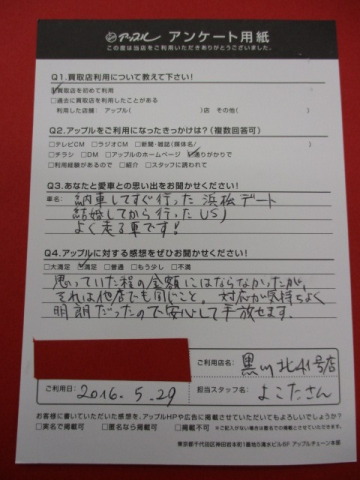 アップル アンケート用紙
この度は当店をご利用いただきありがとうございました。
Q1.買取店利用について教えて下さい!
□買取店を初めて利用
□過去に買取店を利用したことがある
利用した店舗: アップル( )店 その他( )
Q2.アップルをご利用になったきっかけは?(複数回答可)
□テレビCM □ラジオCM □新聞・雑誌(媒体名: )
□チラシ □DM □アップルのホームページ □通りがかりで
□利用経験があるので □紹介 □スタッフに誘われて
Q3.あなたと愛車との思い出をお聞かせください!
車名:
納車してすぐ行った浜松デート
結婚してから行ったUSJ
よく走る車です!
Q4.アップルに対する感想をぜひお聞かせください!
□大満足 □満足 □普通 □もう少し □不満
思っていた程の金額にはならなかったが、
それは他店でも同じこと。対応が気持ちよく
明朗だったので安心して手放せます。
ご利用店名: 黒川北41号店
ご利用日: 2016.5.29 担当スタッフ名: よこたさん
お客様に書いていただいた感想を、アップルHPや広告に掲載させていただいてもよろしいでしょうか?
□実名で掲載可 □匿名なら掲載可 □掲載不可 ※ご記入がない場合は匿名での掲載とさせていただきます。